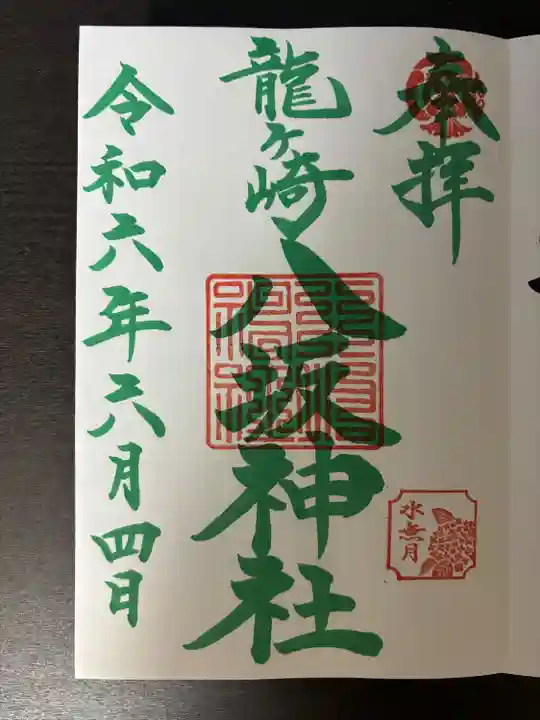 奉拝
龍ヶ崎八坂神社
令和六年六月四日
水無月